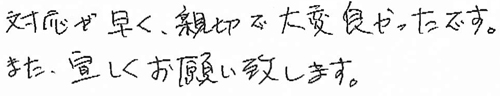 対応が早く、親切で大変良かったです。
また、宜しくお願い致します。